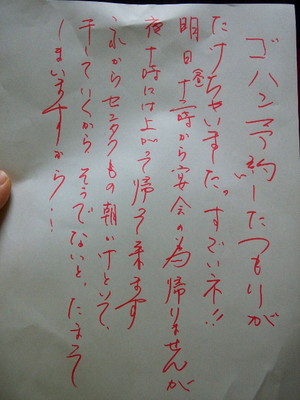 ゴハン予約したつもりが
たけちゃいました〃すごいネ!!
明日十二時から宴会の為帰りませんが
夜十時には上がって帰って来ます
これからセンタクもの朝かけといて、
干していくから、そうでないと、たまって
しまいますから!